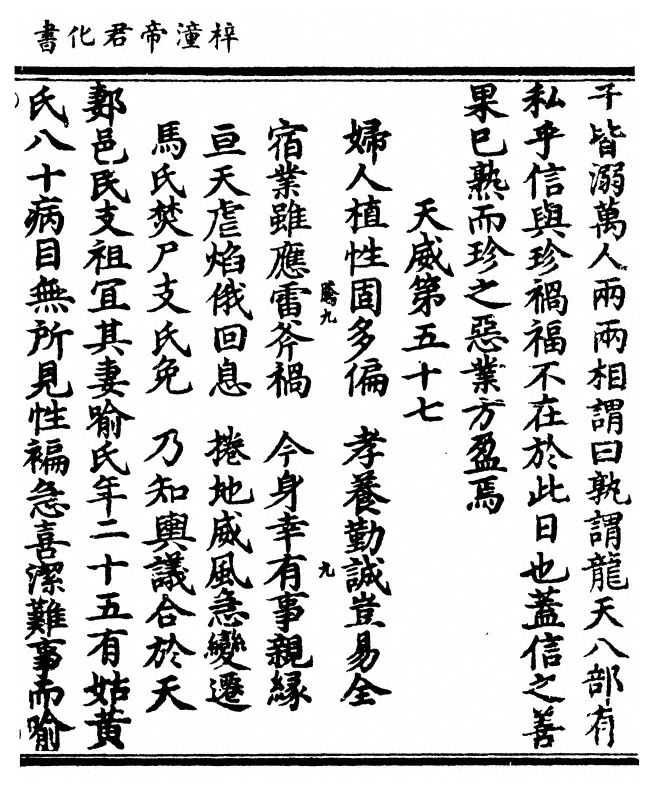 梓潼帝君化書
子皆溺萬人兩兩相謂曰孰謂龍天八部有
私乎信與珍禍福不在於此日也蓋信之善
果已熟而珍之惡業方盈焉
天威第五十七
婦人植性固多偏 孝養勤誠豈易全
宿業雖應雷斧禍 今身幸有事親緣
亘天虐焰俄回息 捲地威風急變遷
馬氏焚尸支氏免 乃知輿議合於天
鄭邑民支祖冝其妻喻氏年二十五有姑黃
氏八十病目無所見性褊急喜潔難事而喻
騰九
九